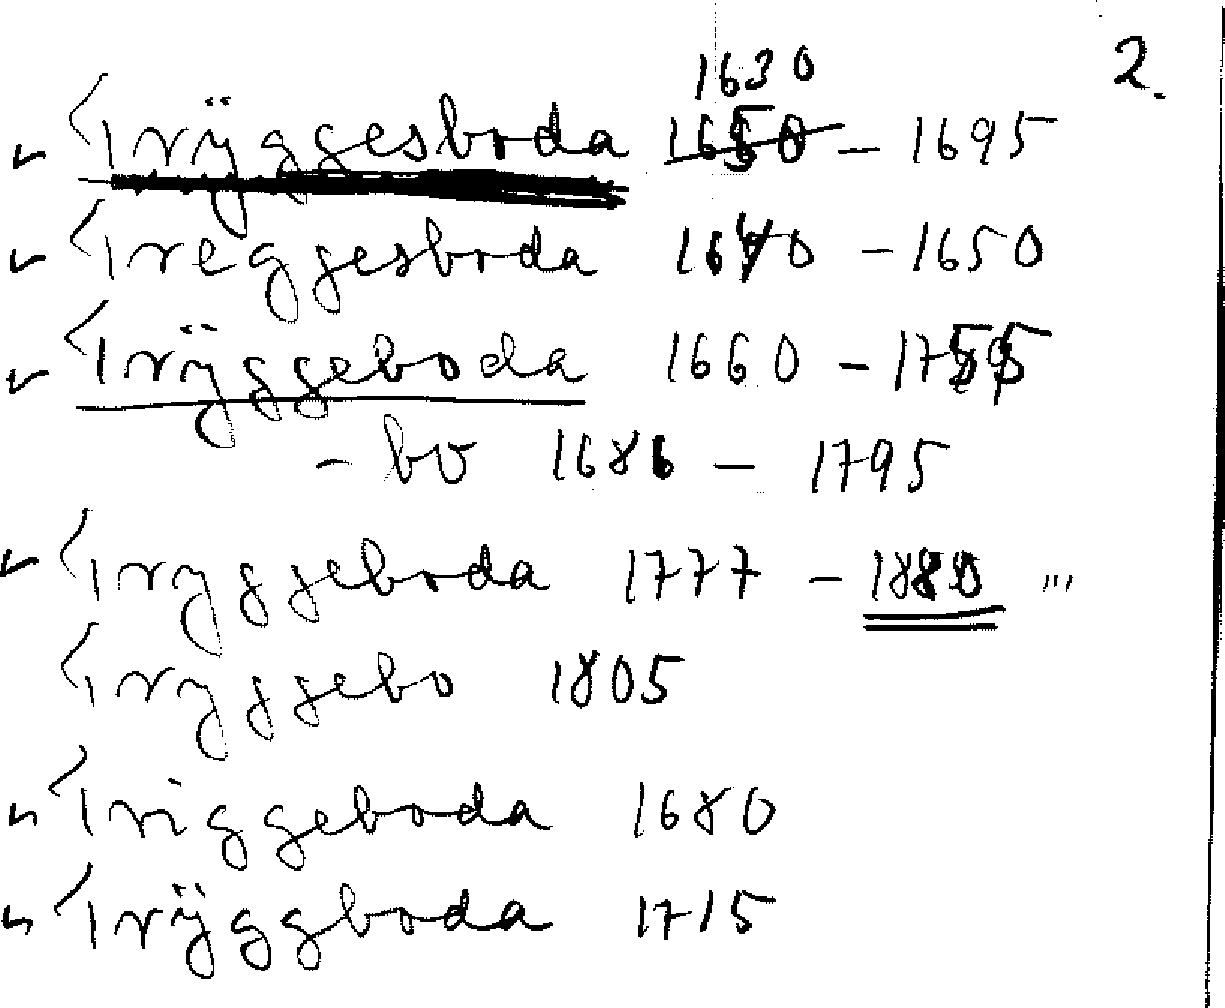 2.
1630
Trÿggesboda 1650 – 1695
Treggesboda 1640 – 1650
Trÿggeboda 1660 – 1755
– bo 1686 – 1795
Tryggeboda 1777 – 1880 "'
Tryggebo 1805
Triggeboda 1680
Trÿggboda 1715